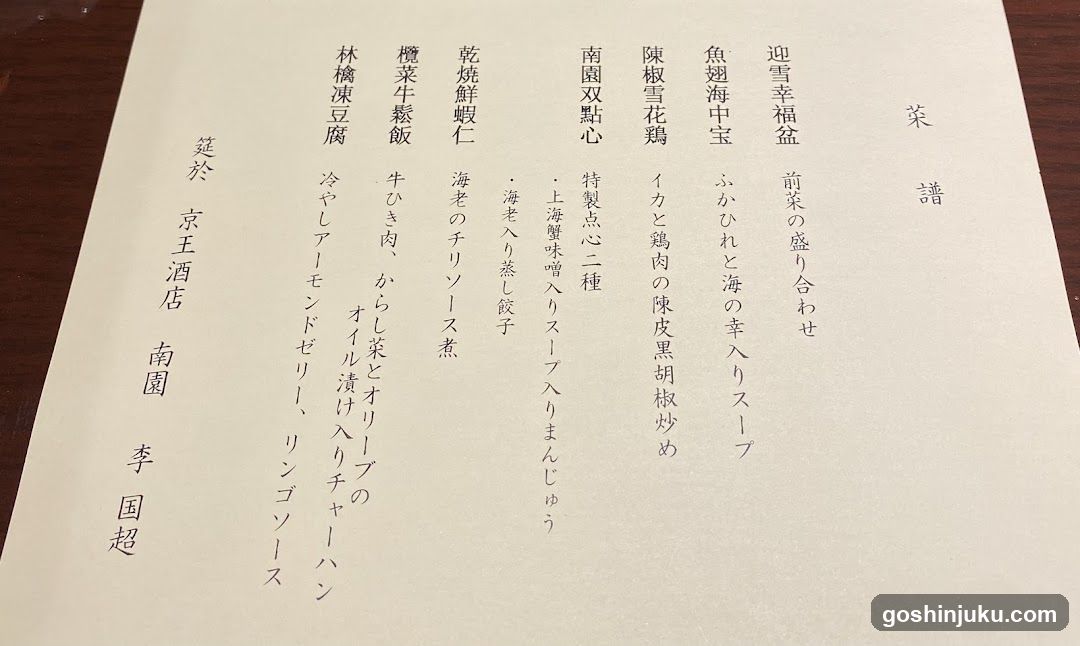 菜譜
迎雪幸福盆 前菜の盛り合わせ
魚翅海中宝 ふかひれと海の幸入りスープ
陳椒雪花鶏 イカと鶏肉の陳皮黒胡椒炒め
南園双點心 特製点心二種
・上海蟹味噌入りスープ入りまんじゅう
・海老入り蒸し餃子
乾焼鮮蝦仁 海老のチリソース煮
欖菜牛鬆飯 牛ひき肉、からし菜とオリーブの
オイル漬け入りチャーハン
林檎凍豆腐 冷やしアーモンドゼリー、リンゴソース
筵於 京王酒店 南園 李国超
goshinjuku.com